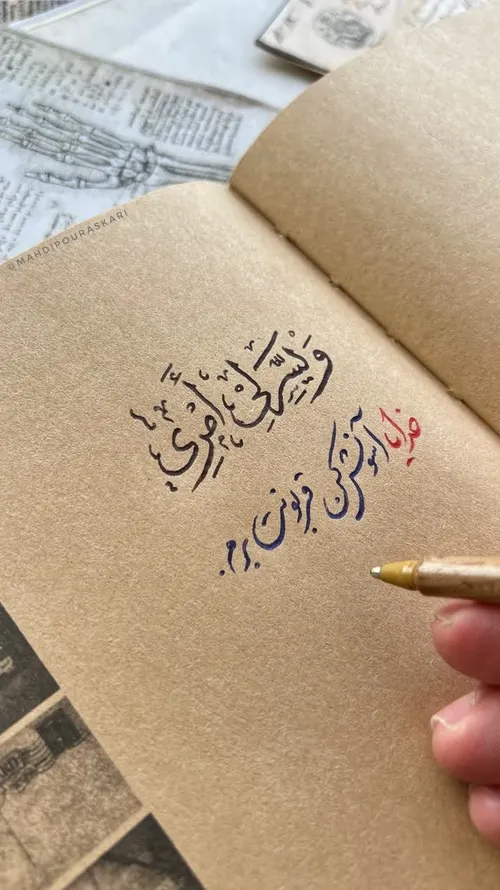 @MAHDIPOURASKARI
وَيَسِّرلي أَمري
خدایا آسونش کن قربونت برم.